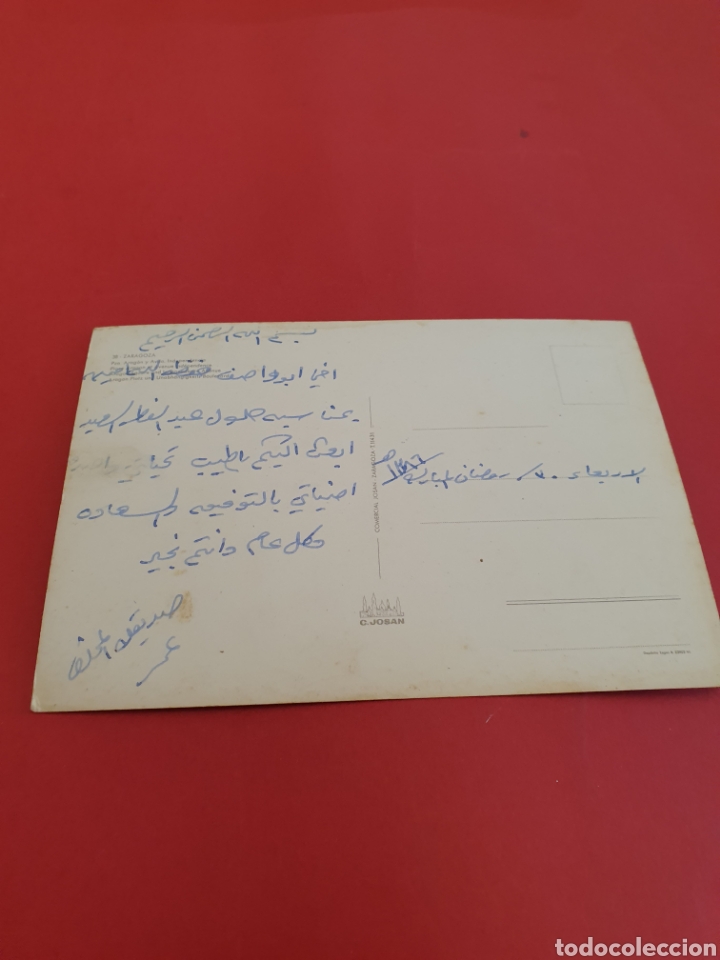 بسم الله الرحمن الرحيم
ZARAGOZA
اخي ابو واصف حفظه الله
بمناسبة حلول عيد الفطر السعيد
ابعث اليكم باطيب تحياتي
امنياتي بالتوفيق والسعاده
وكل عام وانتم بخير
صديقك المخلص
عمر
COMERCIAL JOSAN - ZARAGOZA
C. JOSAN
الاربعاء ٢٠ / رمضان المبارك
todocoleccion